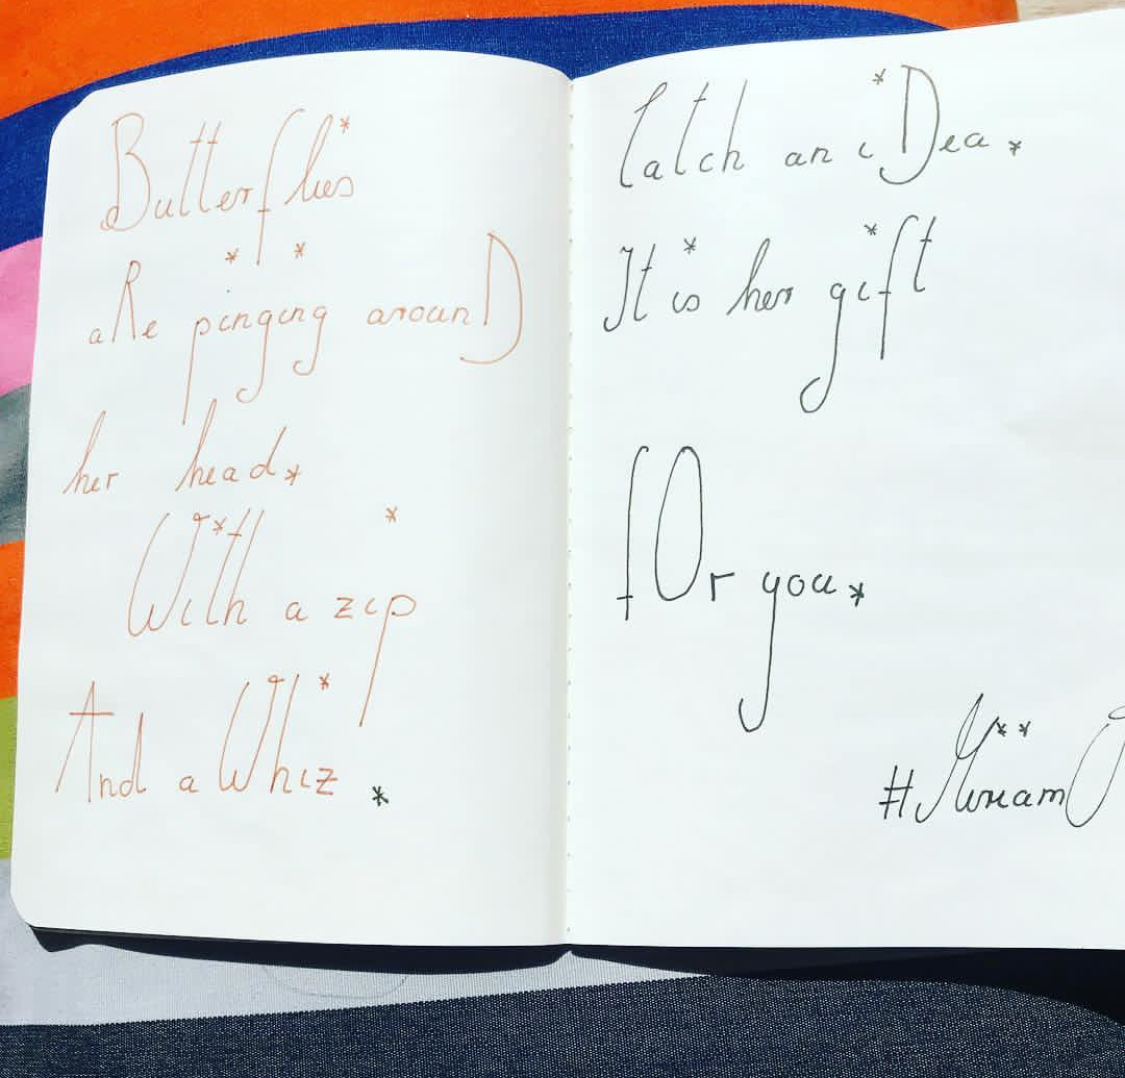 Butterflies
aRe pinging arounD
her head*
With a zip
And a Whiz *
Catch an iDea *
It is her gift
fOr you *
#Miriam